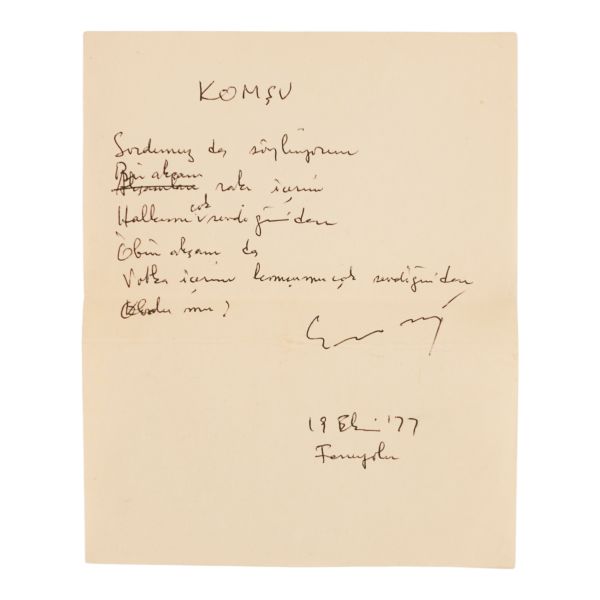 KOMŞU
Sordunuz da söylüyorum
Bir akşam
rakı içerim
Halkımı çok sevdiğimden
Öbür akşam da
Votka içerim komşumu çok sevdiğimden
Oldu mu?
19 Ekim '77
Feneryolu